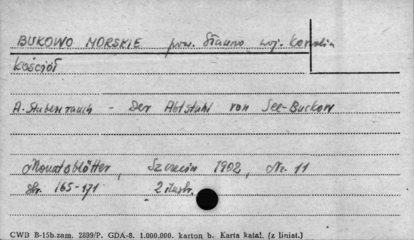 BUKOWO MORSKIE pow. Sławno, woj. Koszalin
Kościół
A. Stubenrauch - Der Abtstuhl von See-Buckow
Monatsblätter, Szczecin 1902, Nr. 11
str. 165-171 2 ilustr.
CWD B-15b.zam. 2899/P. GDA-8. 1.000.000. karton b. Karta katal. (z liniat.)